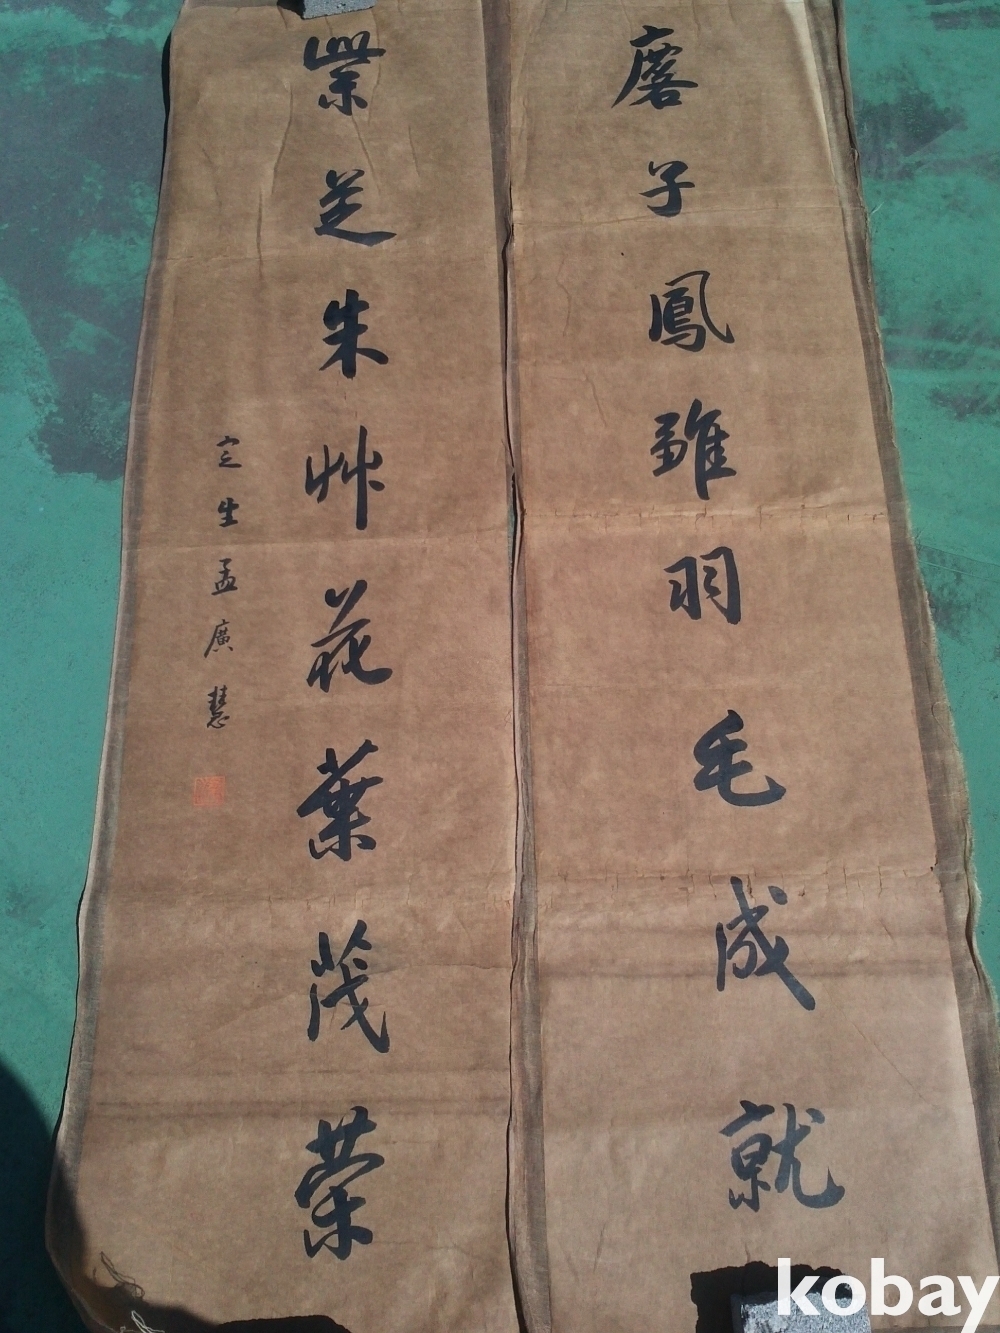 麐子鳳雖羽毛成就
紫芝朱艸花葉茂榮
定生孟廣慧
kobay